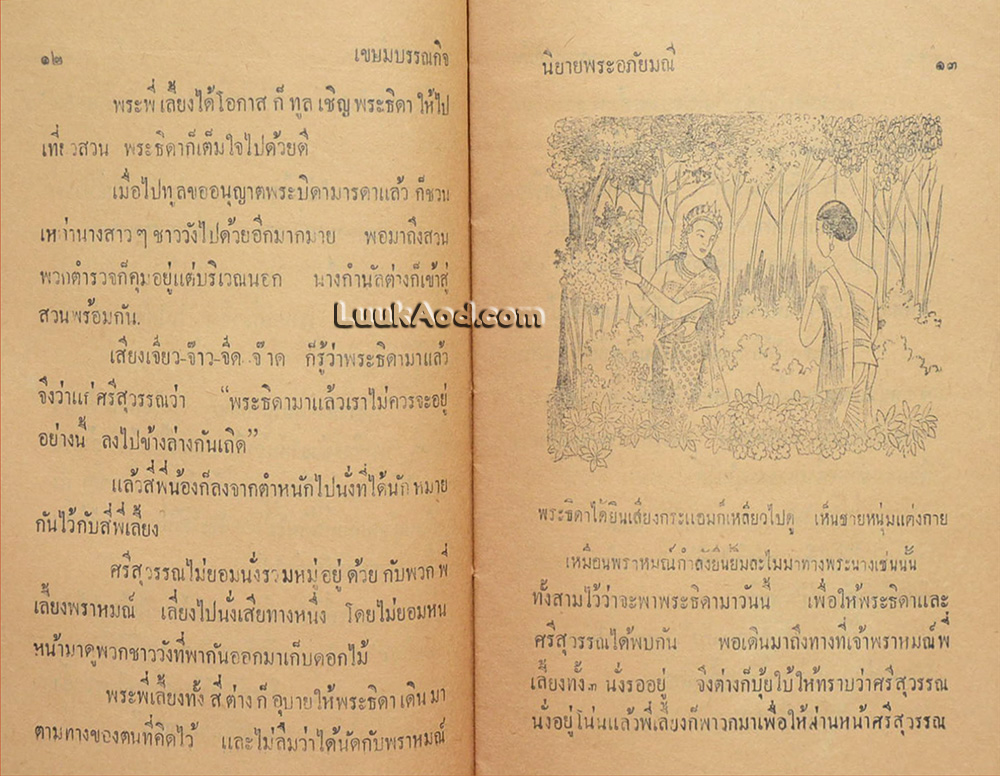 ๑๒ เขษมบรรณกิจ
พระพี่เลี้ยงได้โอกาส ก็ ทูล เชิญ พระธิดา ให้ไป
เที่ยวสวน พระธิดาก็เต็มใจไปด้วยดี
เมื่อไปทูลขออนุญาตพระบิดามารดาแล้ว ก็ชวน
เหล่านางสาว ๆ ชาววังไปด้วยอีกมากมาย พอมาถึงสวน
พวกตำรวจก็คุมอยู่แต่บริเวณนอก นางกำนัลต่างก็เข้าสู่
สวนพร้อมกัน.
เสียงเจี๊ยว-จ๊าว-จี๊ด จ๊าด ก็รู้ว่าพระธิดามาแล้ว
จึงว่าแก่ ศรีสุวรรณว่า “พระธิดามาแล้วเราไม่ควรจะอยู่
อย่างนี้ ลงไปข้างล่างกันเถิด”
แล้วสี่พี่น้องก็ลงจากตำหนักไปนั่งที่ได้นัก หมาย
กันไว้กับสี่พี่เลี้ยง
ศรีสุวรรณไม่ยอมนั่งรวมหมู่อยู่ ด้วย กับพวก พี่
เลี้ยงพราหมณ์ เลี่ยงไปนั่งเสียทางหนึ่ง โดยไม่ยอมหน
หน้ามาดูพวกชาววังที่พากันออกมาเก็บดอกไม้
พระพี่เลี้ยงทั้ง สี่ ต่าง ก็ อุบายให้พระธิดา เดิน มา
ตามทางของตนที่คิดไว้ และไม่ลืมว่าได้นัดกับพราหมณ์
นิยายพระอภัยมณี ๑๓
พระธิดาได้ยินเสียงกระแอมก็เหลียวไปดู เห็นชายหนุ่มแต่งกาย
เหมือนพราหมณ์กำลังยืนยิ้มละไมมาทางพระนางเช่นนั้น
ทั้งสามไว้ว่าจะพาพระธิดามาวันนี้ เพื่อให้พระธิดาและ
ศรีสุวรรณได้พบกัน พอเดินมาถึงทางที่เจ้าพราหมณ์พี่
เลี้ยงทั้ง๓ นั่งรออยู่ จึงต่างก็บุ้ยใบ้ให้ทราบว่าศรีสุวรรณ
นั่งอยู่โน่นแล้วพี่เลี้ยงก็พาวกมาเพื่อให้ผ่านหน้าศรีสุวรรณ
LuukAod.com